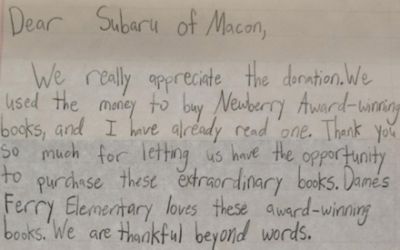 Dear Subaru of Macon,
We really appreciate the donation. We
used the money to buy Newberry Award-winning
books, and I have already read one. Thank you
so much for letting us have the opportunity
to purchase these extraordinary books. Dames
Ferry Elementary loves these award-winning
books. We are thankful beyond words.